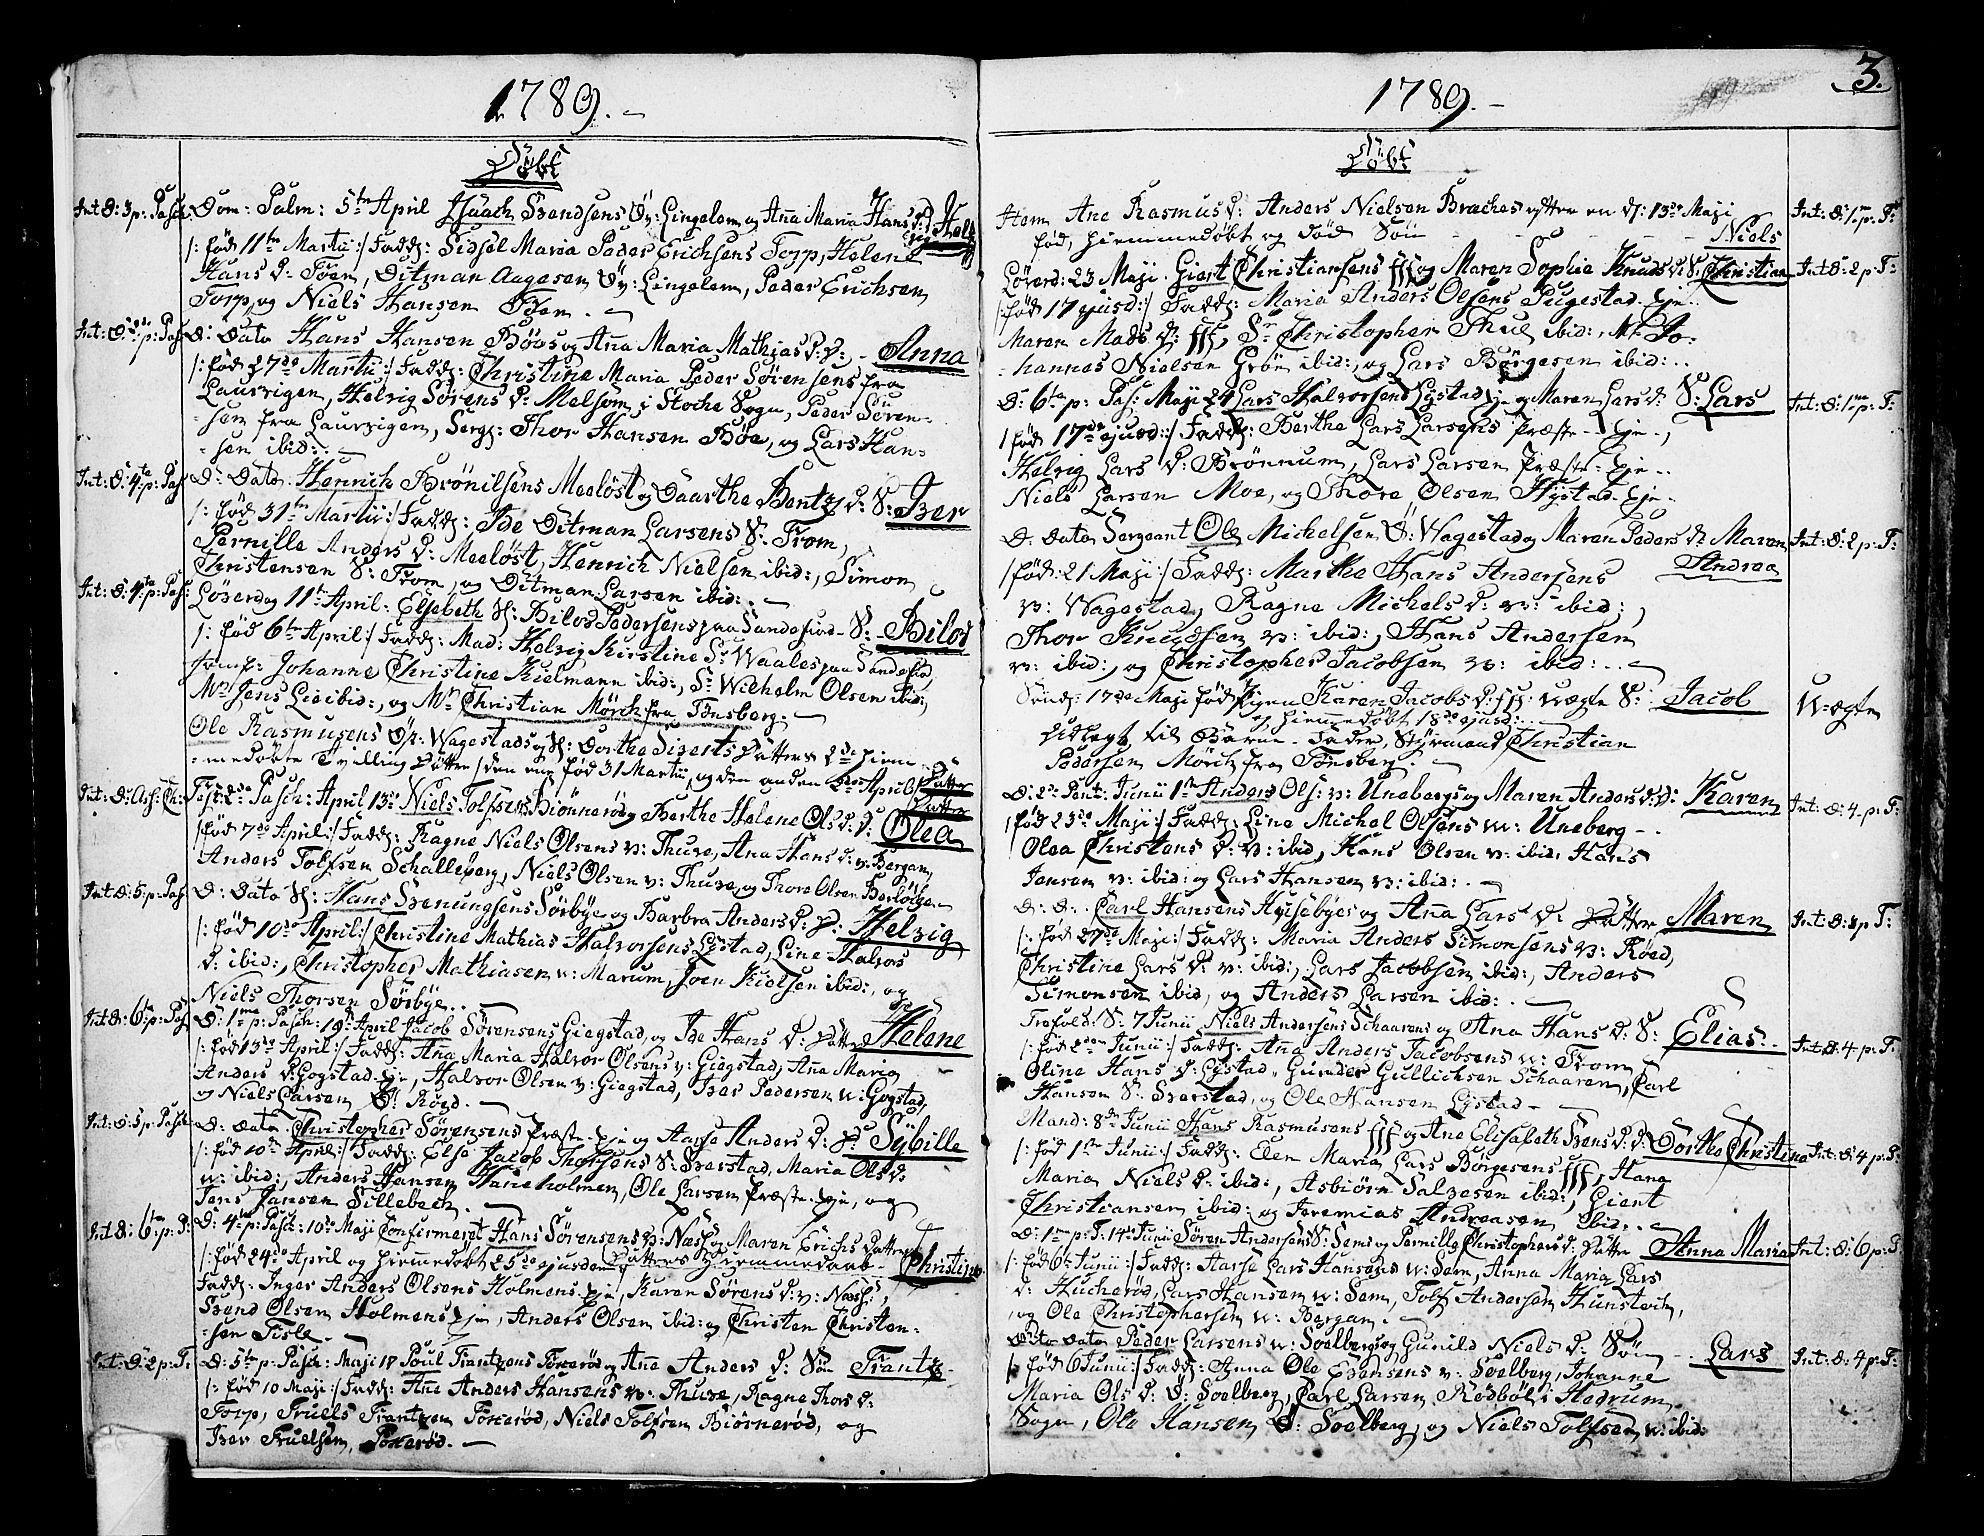 1789.
Døbt
Int: D: 3 p: Pasch:
Dom: Palm: 5te April Isaach Svendsens Øv: Lingelem og Aña Maria Hans D:
/: fød 11te Martii :/ Fadd: Sidsel Maria Peder Erichsens Torp, Helene
Hans D: Toen, Ditman Aagesen Øv: Lingelem, Peder Erichsen
Torp, og Niels Hansen Boen.
Int: D: p: Pasch
D: Dato Hans Hansen Bøes og Aña Maria Mathias D: D: Anna
/: fød 27de Martii :/ Fadd: Christine Maria Peder Sørensens fra
Laurvigen, Helvig Sørens D: Melsom i Stoche Sogn, Peder Søren-
-sen fra Laurvigen, Serg: Thor Hansen Bøe, og Lars Han-
-sen ibid:
Int: D: 4te p: Pas:
D: Dato Henrich Brönilsens Meeløst og Daarthe Bentz D: S: Iver
/: fød 31te Martii :/ Fadd: Ide Ditman Larsens S: From,
Pernille Anders D: Meeløst, Henrich Nielsen ibid:, Simon
Christensen S: From, og Ditman Larsen ibid:
Int: D: 4te p: Pas:
Løverdag 11te April: Elsebeth H: Bilod Pedersens paa Sandefiord S: Bilod
/: fød 6te April :/ Fadd: Mad: Helvig Kirstine Sr Waales paa Sandefiord,
Jomf: Johanne Christine Kielmann ibid:, Sr Wilhelm Olsen ibid:,
Mr Jens Lie ibid:, og Mr Christian Mørch fra Tønsberg.
Ole Rasmusens Ør: Wagestads og H: Dorthe Siverts Døttre 2de hiem-
-medøbte Tvilling Døttre /den ene fød 31 Martii, og den anden 2den April/ Datter
Datter
Int: D: Asc: Ch:
Fest: 2de Pasch: April 13de Niels Tolfsens Biönnerød og Berthe Helene Ols D: D: Olea
/: fød 7de April :/ Fadd: Ragne Niels Olsens v: Thuve, Aña Hans D: v: Bergan,
Anders Tolfsen Schalleberg, Niels Olsen v: Thuve, og Thore Olsen
Int: D: 5: p: Pas:
D: Dato H: Hans Svenungsens Sørbye og Barbra Anders D: D: Helvig
/: fød 10de April :/ Christine Mathias Halvorsens Lystad, Line Halvors
D: ibid:, Christopher Mathiasen v: Marum, Joen Kielsen ibid:, og
Niels Thorsen Sørbye.
Int: D: 6te p: Pas
D: 1me p: Pasch: 19de April Jacob Sørensens Giegstad, og Ide Hans D: Datter Helene
/: fød 13de April :/ Fadd: Aña Maria Halvor Olsens v: Giegstad, Aña Maria
Anders D: Gogstad Eje, Halvor Olsen v: Giegstad, Iver Pedersen v: Gogstad,
og Niels Larsen Ø: Røed.
Int: D: 5 p: Pasch:
D: Dato Christopher Sørensens Præste-Eje og Aase Anders D: D: Sybille
/: fød 10de April :/ Fadd: Else Jacob Thorsens S: Sverstad, Maria Ols D:
v: ibid:, Anders Hansen Haneholmen, Ole Larsen Præste-Eje, og
Jens Jansen Sillebech.
Int: D: 6te p: P:
D: 4te p: Pasch: 10de Maji Confirmeret Hans Sørensens v: Næss og Maren Erichs Datters
/: fød 24de April og hiemmedøbt 25de ejusdem Datters Hiemmedaab Christine
Fadd: Inger Anders Olsens Holmens Eje, Karen Sørens D: v: Næss,
Svend Olsen Holmens Eje, Anders Olsen ibid: og Christen Christen-
-sen Fisle.
Int: D: 2 p: T:
D: 5te p: Pasch: Maji 17 Poul Frantzens Förerød og Añe Anders D: Søn Frantz
/: fød 10 Maji :/ Fadd: Añe Anders Hansens v: Thuve, Ragne Thors D:
Torp, Truels Frantzen Förerød, Niels Tolfsen Biörnerød, og
Iver Truelsen, Förerød.
1789.
3.
Døbt
Item Ane Rasmus D: Anders Nielsen Braches efter en D: 13de Maji
fød, hiemmedøbt og død Søn Niels
Int: D: 1me p: T:
Løverd: 23 Maji Giert Christiansens fff og Maren Sophie Knuds D: S: Christian
/: fød 17 ejusd :/ Fadd: Maria Anders Olsens Pugestad Eje
Maren Mads D: fff, Sr Christopher Thue ibid:, Mr Jo-
-hannes Nielsen Grön ibid:, og Lars Börgesen ibid:
Int: D: 2 p: T:
D: 6te p: Pas: Maji 24 Lars Halvorsens Lystad Eje og Maren Lars D: S: Lars
/: fød 17de ejusd :/ Fadd: Berthe Lars Larsens Præste-Eje,
Helvig Lars D: Brönnum, Lars Larsen Præste-Eje
Niels Larsen Moe, og Thore Olsen Hystad-Eje
Int: D: 1me p: T:
D: Dato Sergeant Ole Michelsen Ø: Wagestad og Maren Peders D: Maren
Andrea
/: fød 21 Maji :/ Fadd: Marthe Hans Andersens
v: Wagestad, Ragne Michels D: v: ibid:,
Thor Knudsen v: ibid:, Hans Andersen
v: ibid:, og Christopher Jacobsen v: ibid:
Int: D: 2 p: T:
Sönd: 17de Maji fød Pigen Karen Jacobs D: fff: Uægte S: Jacob
og hiemmedøbt 18de ejusd:
Udlagt til Barne-Fader, Styrmand Christian
Pedersen Mörch fra Tønsberg.
Uægte
D: 2de Pent: Junii 1ste Anders Ols: v: Unebergs og Maren Anders D: D: Karen
/: fød 23de Maji :/ Fadd: Line Michel Olsens v: Uneberg
Olea Christens D: v: ibid, Hans Olsen v: ibid: Hans
Jensen v: ibid: og Lars Hansen v: ibid:
Int: D: 4 p: T:
D: D: Carl Hansens Ausebyes og Aña Lars D: Datter Maren
/: fød 27de Maji :/ Fadd: Maria Anders Simonsens v: Röed,
Christine Lars D: v: ibid:, Lars Jacobsen ibid:, Anders
Simonsen ibid, og Anders Larsen ibid:
Int: D: p T:
Trefold: S: 7 Junii Niels Andersens Schaarens og Ana Hans D: S: Elias
/: fød 2den Junii :/ Fadd: Aña Anders Jacobsens v: From
Oline Hans D: Lystad, Gunder Gullichsen Schaaren, Carl
Hansen S: Sverstad, og Ole Hansen Lystad
Int: D: 4 p: T:
Mand: 8de Junii Hans Rasmusens fff og Ane Elisabeth Svens D: D: Dorthe Christine
/: fød 1ste Junii :/ Fadd: Elen Maria Lars Börgesens fff, Hana
Maria Niels D: ibid:, Asbiörn Salvesen ibid:, Giert
Christiansen ibid: og Jeremias Andreasen ibid:
Int: D: 4 p: T:
D: 1me p: T: 14de Junii Sören Andersens S: Sems og Pernille Christophers D: Datter Anna Maria
/: fød 6te Junii :/ Fadd: Aasse Lars Hansens v: Sem, Anna Maria Lars
D: Hucherød, Lars Hansen v: Sem, Tolf Andersen Hunstoch,
og Ole Christophersen v: Bergan.
Int: D: 6 p: T:
Dito Dato Peder Larsens v: Soelbergs og Gunild Niels D: Søn Lars
/: fød 6 Junii :/ Fadd: Anna Ole Evensens v: Soelberg, Johanne
Maria Ols D: Ø: Soelberg, Carl Larsen Rødbøl i Hedrum
Sogn, Ole Hansen Ø: Soelberg, og Niels Tolfsen v: ibid:
Int: D: 4 p: T: